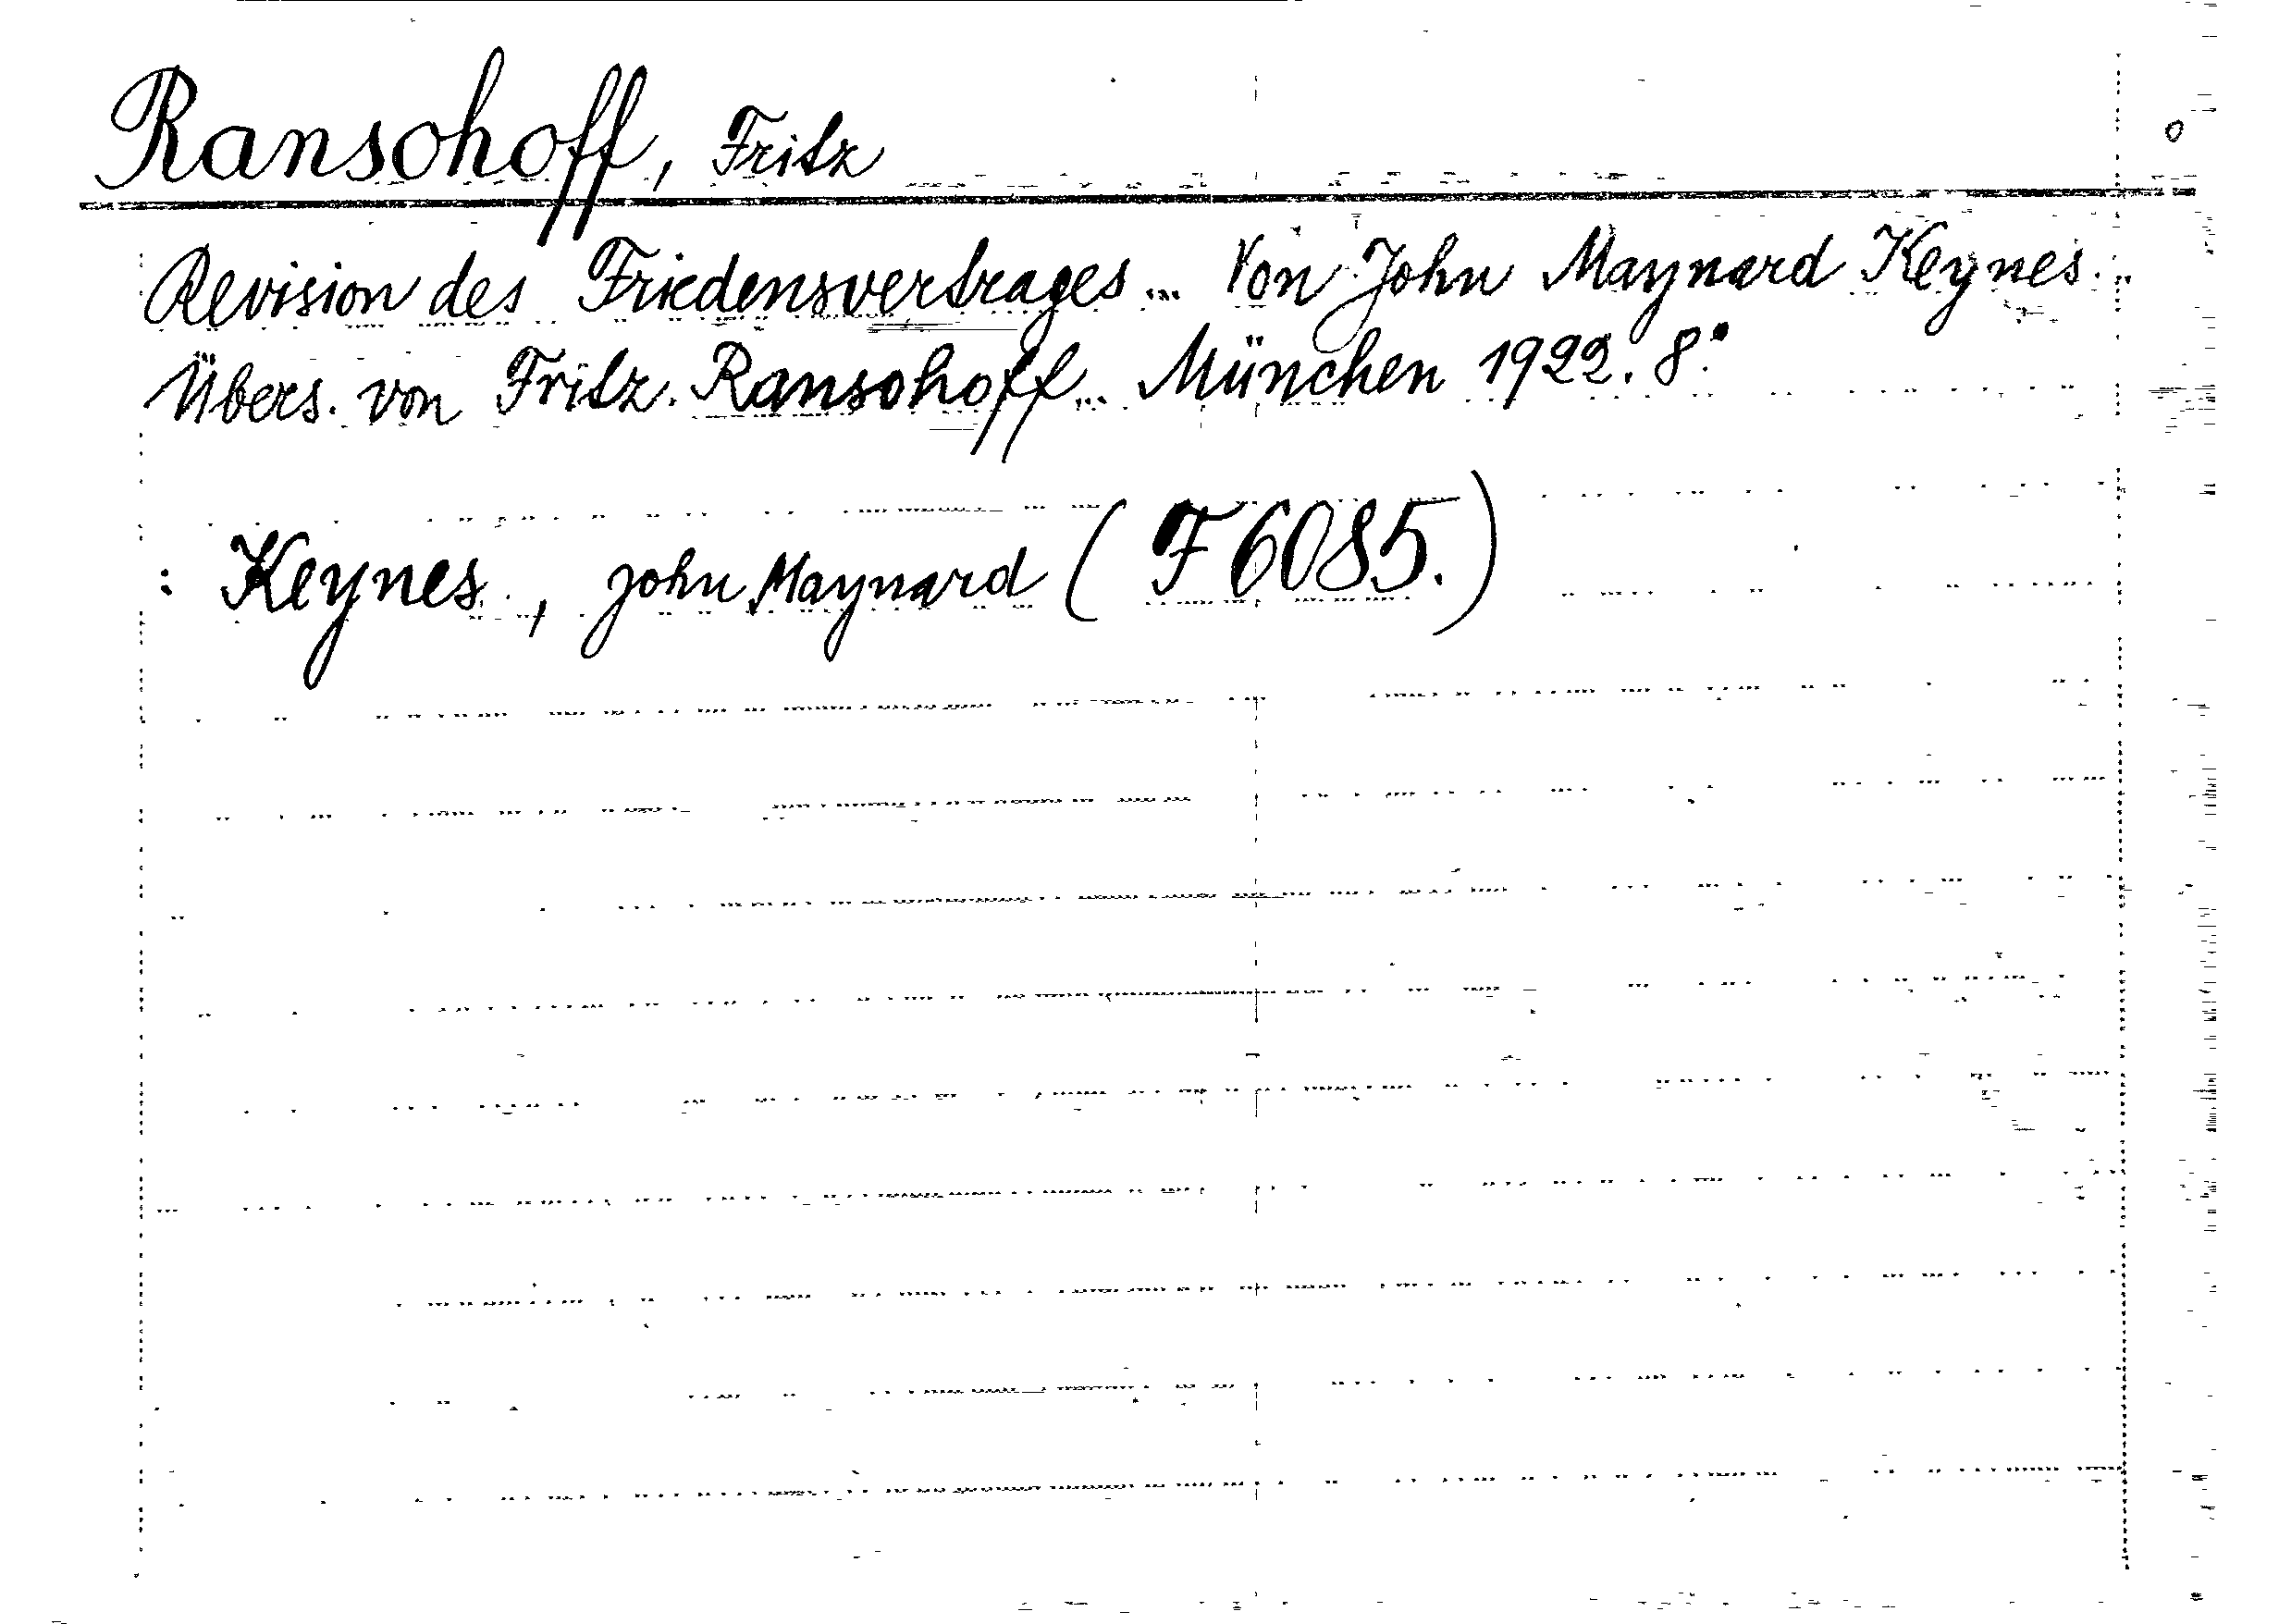 Ransohoff, Fritz
Revision des Friedensvertrages... Von John Maynard Keynes.
Übers. von Fritz Ransohoff... München 1922. 8°
: Keynes, John Maynard (F 6085.)